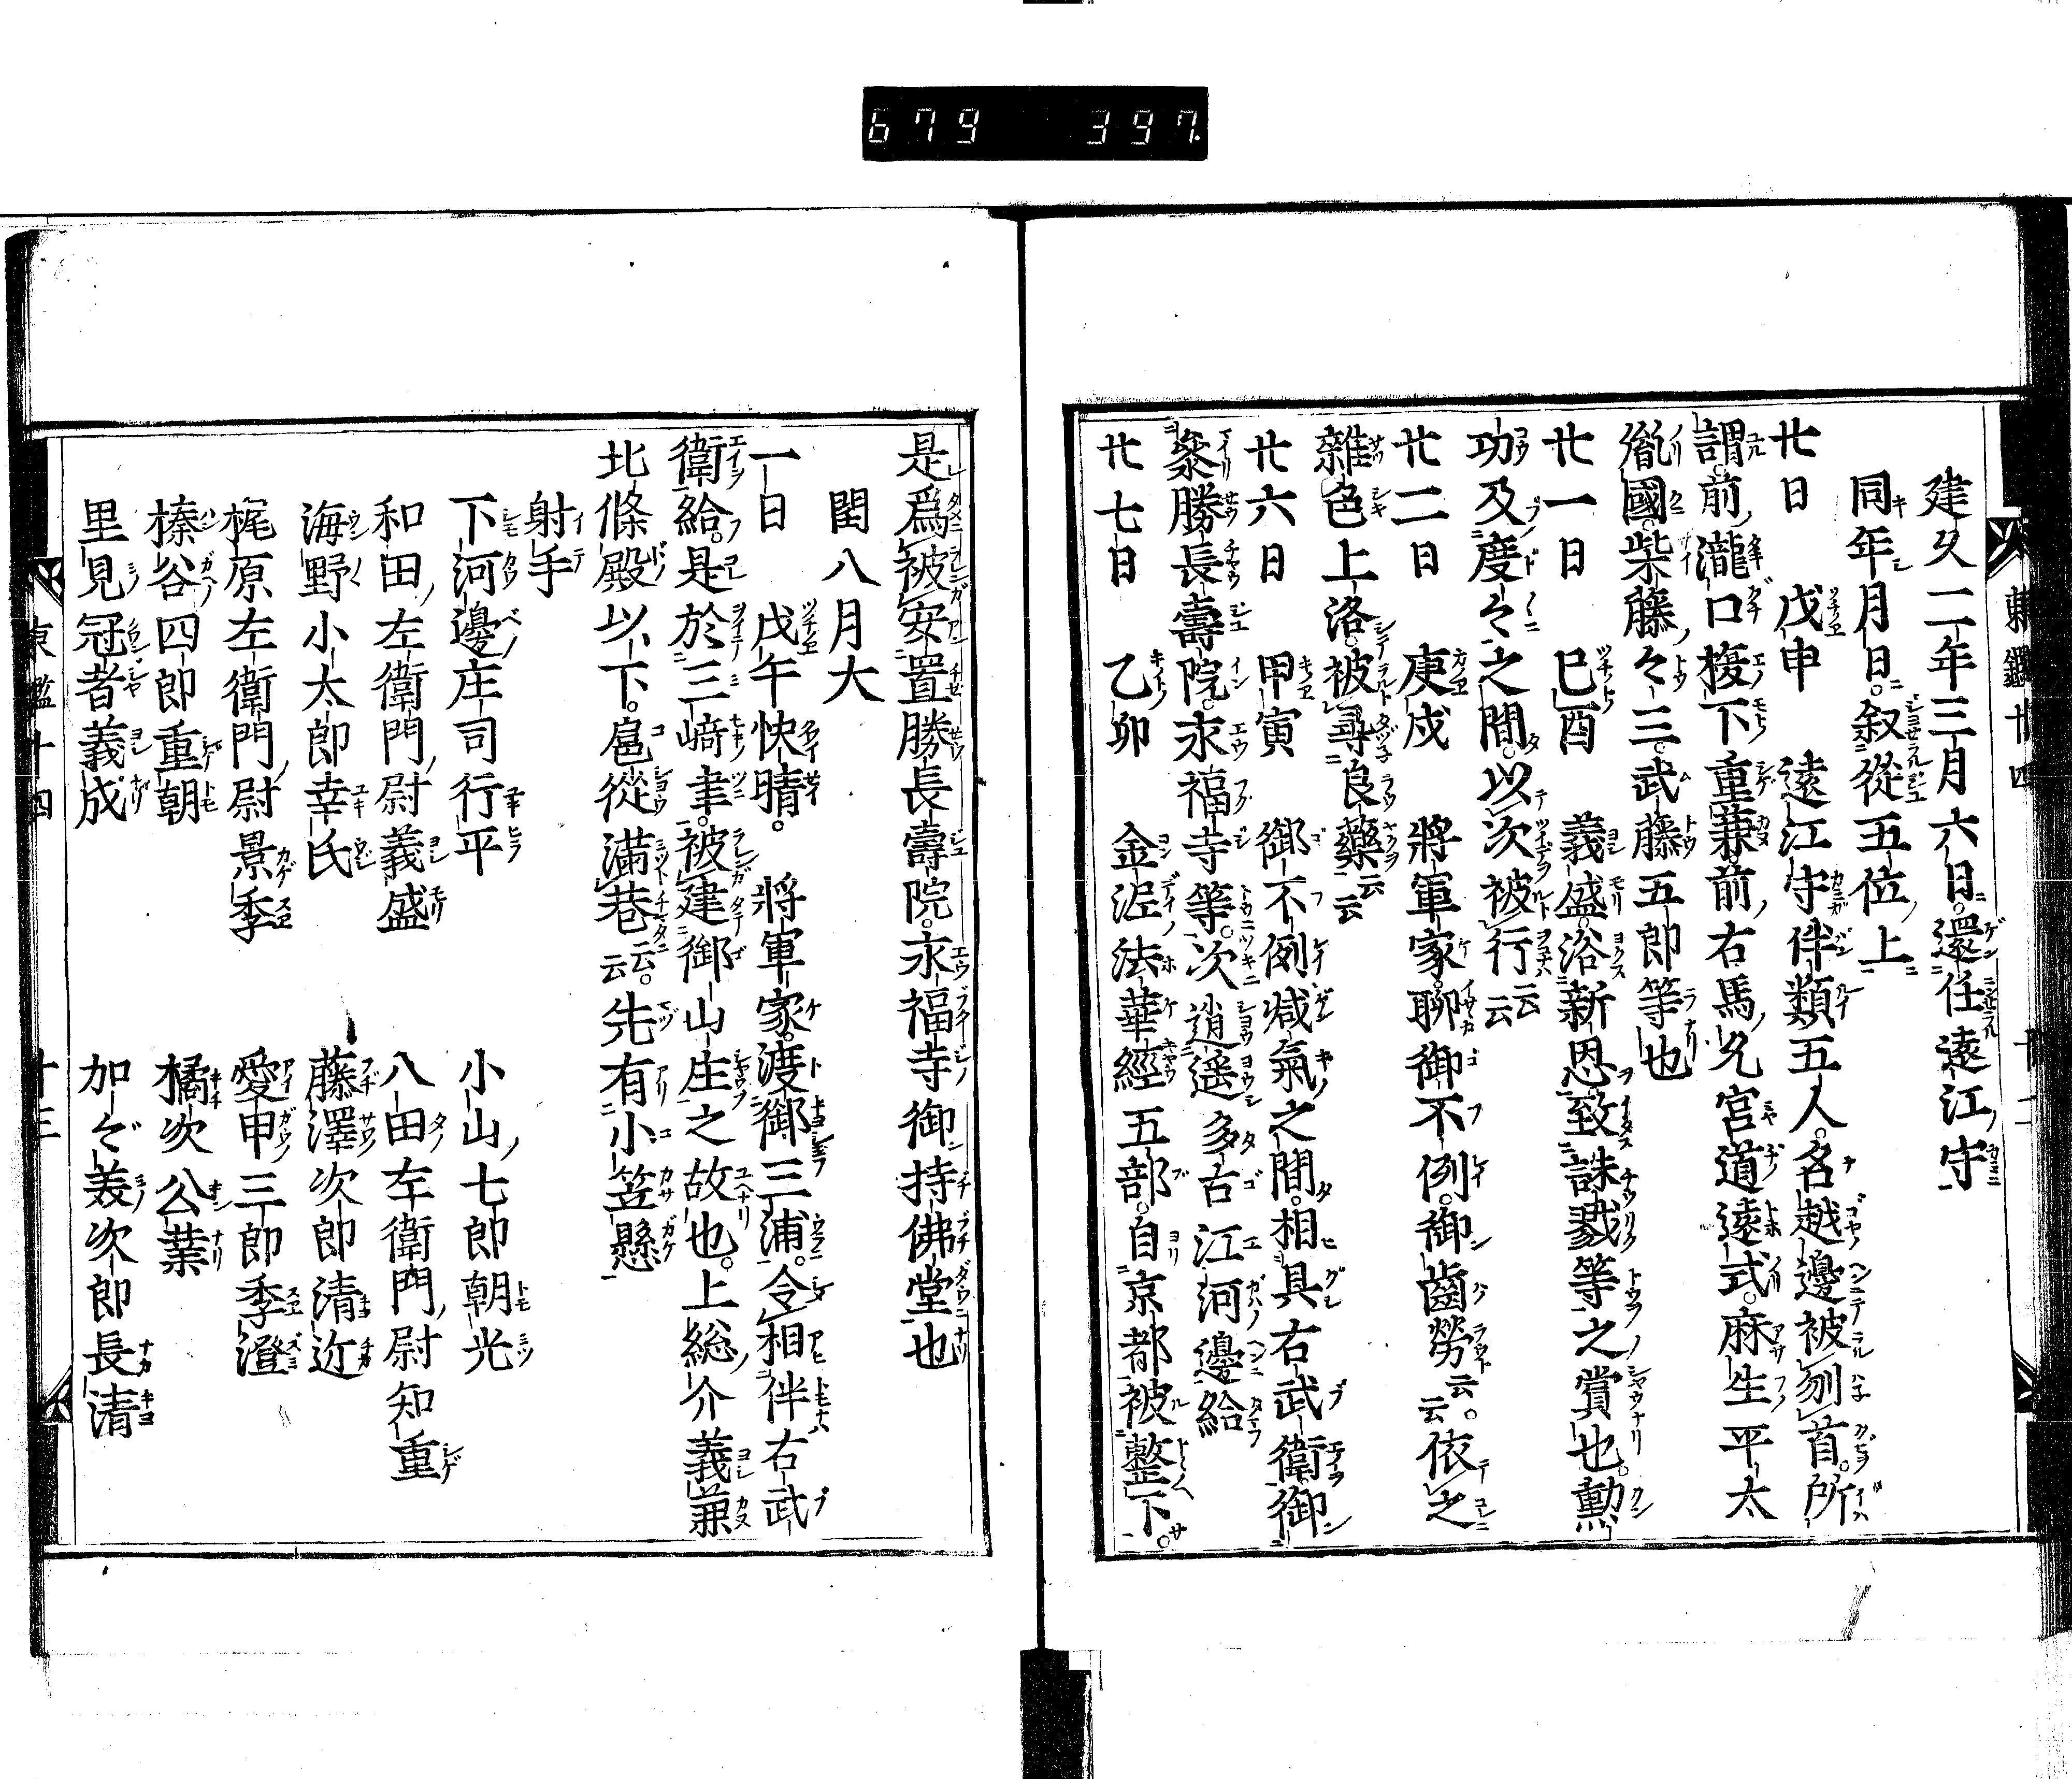 679 397.
建久二年三月六日。還任遠江守
同年月日。叙從五位上
廿日 戊申 遠江守伴類五人。名越邊被刎首。所
謂。前瀧口榎下重兼。前右馬允宮道遠式。麻生平太
胤國。柴藤々三。武藤五郎等也
廿一日 己酉 義盛。浴新恩致誅戮等之賞也。勲
功及度々之間。以次被行云云
廿二日 庚戌 將軍家。聊御不例。御齒勞云云。依之
雜色上洛。被尋良藥云云
廿六日 甲寅 御不例減氣之間。相具右武衛。御
參勝長壽院。永福寺等。次逍遥多古江河邊給
廿七日 乙卯 金泥法華經五部。自京都被整下。
是爲被安置勝長壽院。永福寺御持佛堂也
閏八月大
一日 戊午 快晴。 將軍家。渡御三浦。令相伴右武
衛給。是於三﨑聿。被建御山庄之故也。上総介義兼
北條殿以下。扈從滿巷云云。先有小笠懸
射手
下河邊庄司行平 小山七郎朝光
和田左衛門尉義盛 八田左衛門尉知重
海野小太郎幸氏 藤澤次郎清近
梶原左衛門尉景季 愛甲三郎季澄
榛谷四郎重朝 橘次公業
里見冠者義成 加々美次郎長清